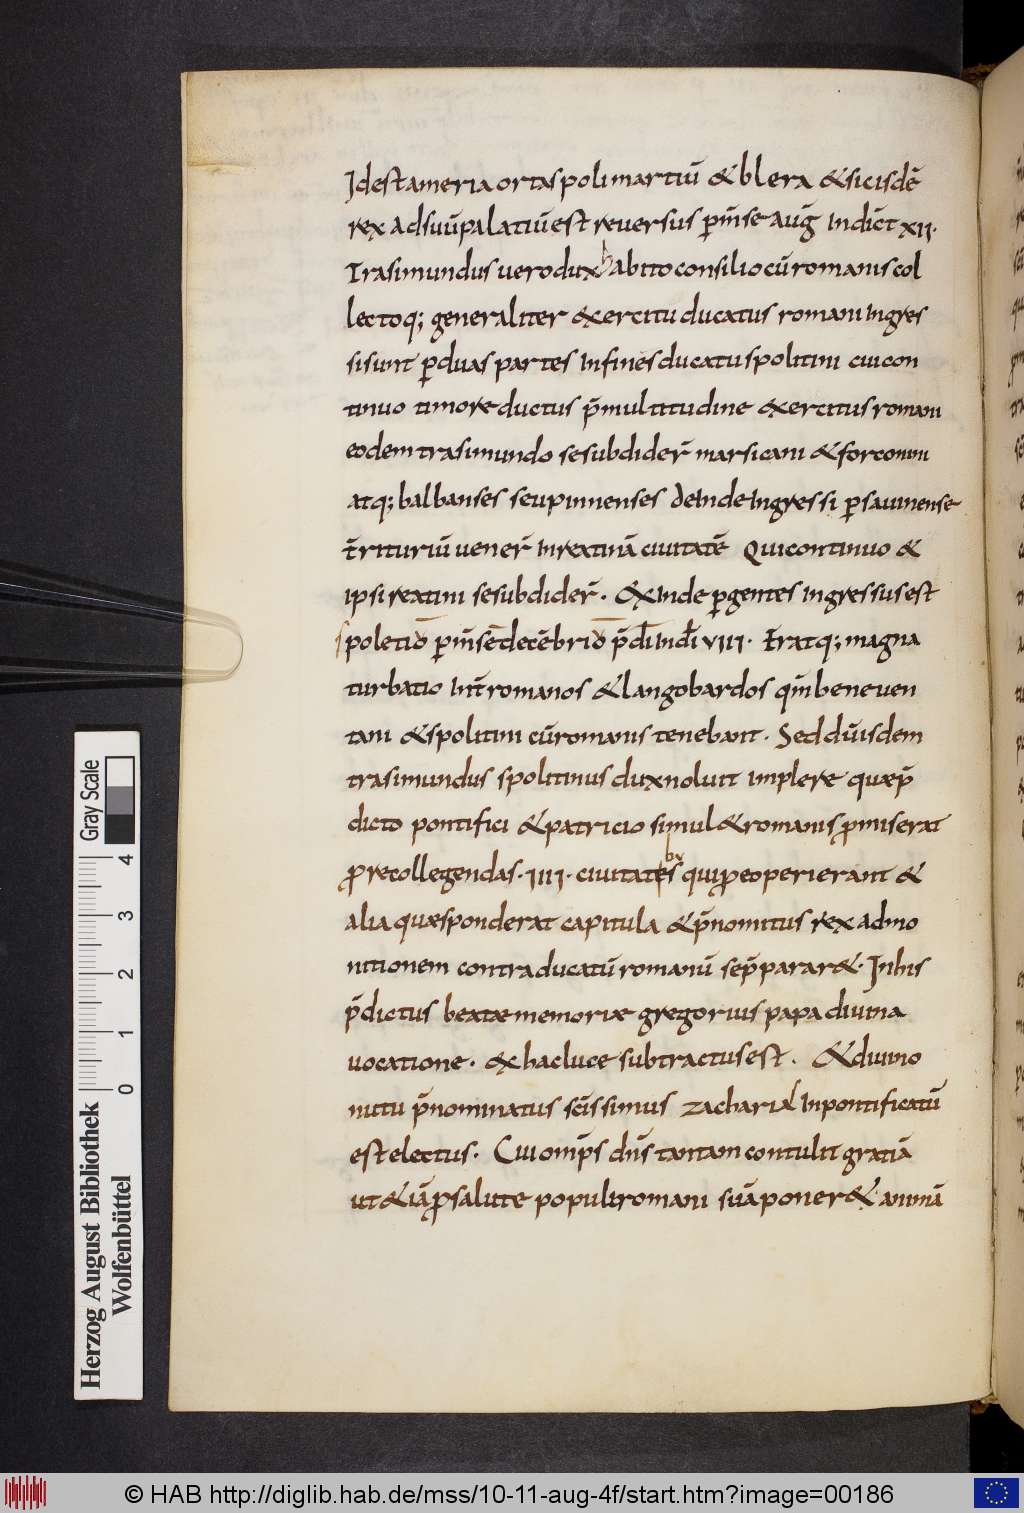 Idest ameria ortas polimartiū & blera & sic isdē
rex ad suū palatiū est reversus p̄ m̄se aug̅ Indic̄t XII·
Trasimundus vero dux habito consilio cū romanis col
lectoq; generaliter exercitu ducatus romani Ingres
si sunt ꝑ duas partes In fines ducatus politini cui con
tinuo timore ductus p̄ multitudine exercitus romani
eodem trasimundo se subdider̄ marsicani & forconini
atq; balbanses seu pinnenses deInde Ingressi ꝑ savinense
t̄rituriū vener̄ In reatinā civitatē Qui continuo &
ipsi reatini se subdider̄· & Inde ꝑgentes Ingressus est
spoletiō ꝑ m̄se decēbriō p̄dī Indī VIII· Eratq; magna
turbatio Int̄ romanos & langobardos qm̄ beneven
tani & spolitini cū romanis tenebant· Sed dū isdem
trasimundus spolitinus dux noluit implere quæ p̄
dicto pontifici & patricio simul & romanis ꝓmiserat
ꝓ recollegendas· IIII· civitates bu qui ꝓ eo perierant &
alia quæ sponderat capitula & p̄nomitus rex admo
nitionem contra ducatū romanū se p̄parar&· In his
p̄dictus beatæ memoriæ gregorius papa divina
vocatione· ex hac luce subtractus est· & divino
nutu p̄nominatus sc̄issimus zacharias In pontificatū
est electus· Cui omp̄s dn̄s tantam contulit gratiā
ut & iā ꝓ salute populi romani suā poner& animā
Herzog August Bibliothek
Wolfenbüttel
0 1 2 3 4
Gray Scale
© HAB http://diglib.hab.de/mss/10-11-aug-4f/start.htm?image=00186